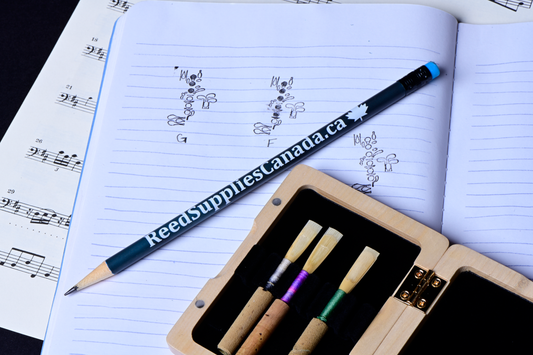 18
21
26
29
G
F
ReedSuppliesCanada.ca